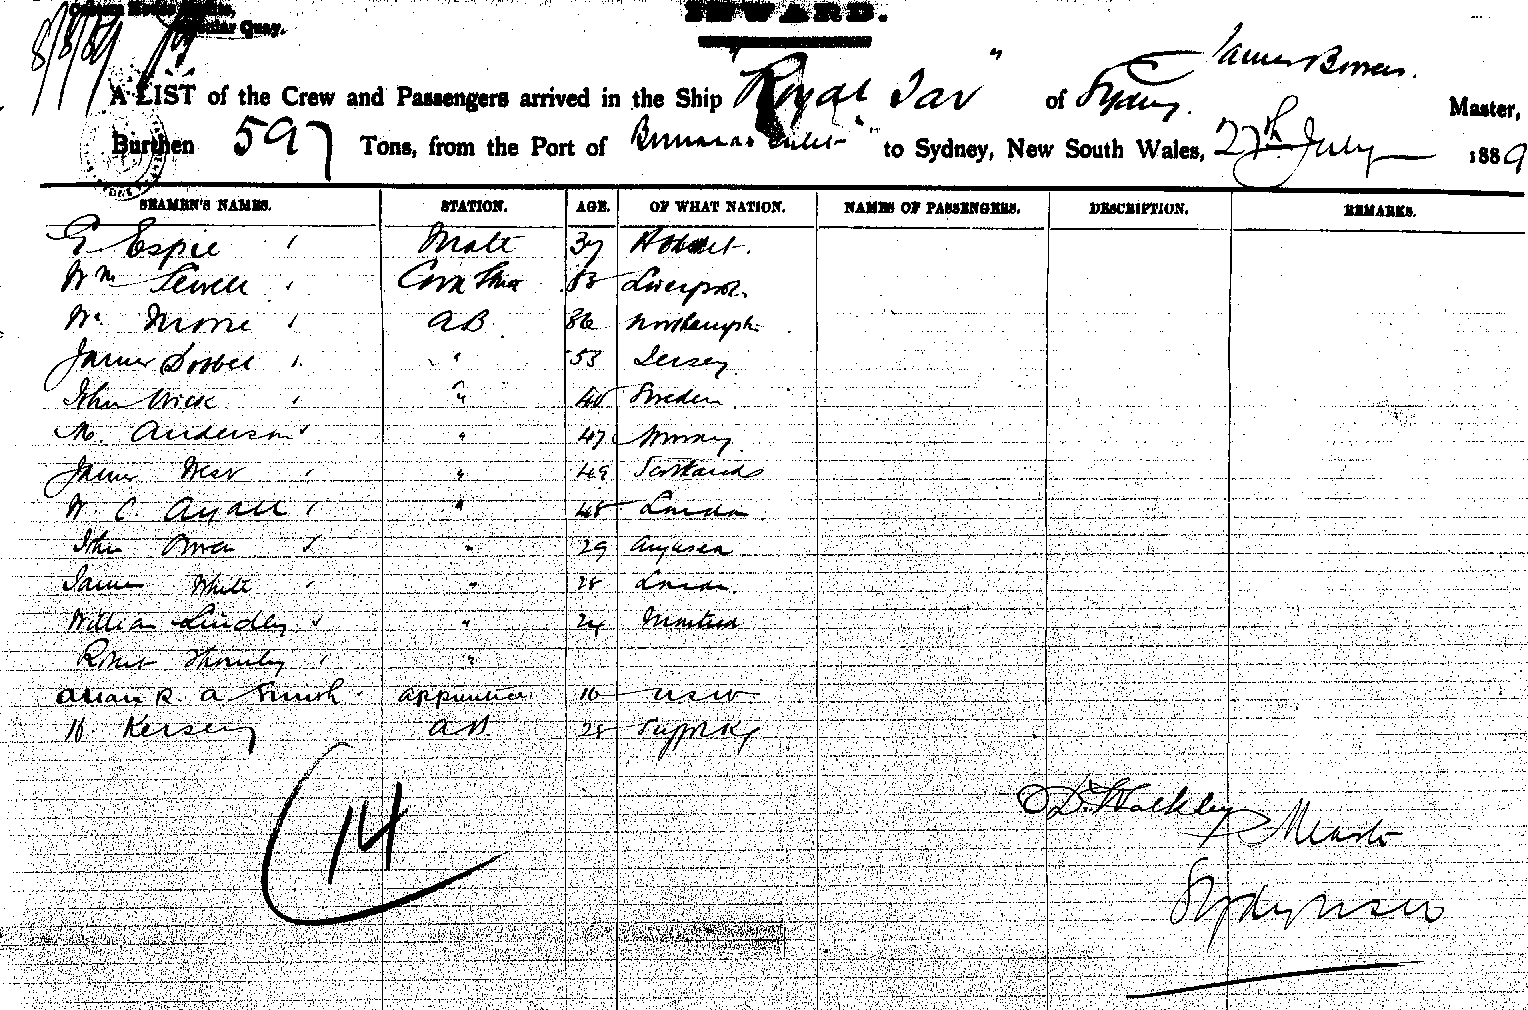 Circular Quay.
INWARD.
8/8/89
A LIST of the Crew and Passengers arrived in the Ship "Royal Tar" of Sydney, James Master,
Burthen 597 Tons, from the Port of to Sydney, New South Wales, 27th July 1889
SEAMEN'S NAMES. STATION. AGE. OF WHAT NATION. NAMES OF PASSENGERS. DESCRIPTION. REMARKS.
G Espie Mate 37 Hobart.
Wm Sewell Liverpool.
AB 36 Northampt
James " 53 Jersey
John Wick " 40 Sweden
M. Anderson " 47 Norway
James West " 49 Scotland
W C " 48 London
John Owen " 29 Anglesea
James White " 28 London.
William Lindley " 24 Montreal
Robert Thornley "
Allan R. A Smith apprentice 16 NSW
H Kersey AB 28 Suffolk
14
Master
Sydney NSW